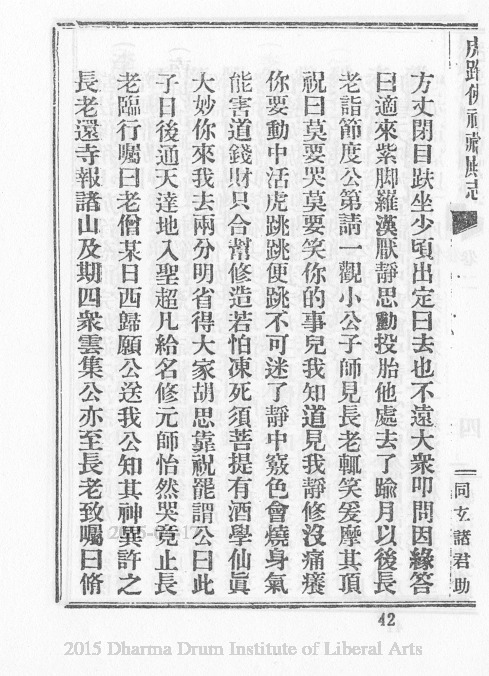 虎跑佛祖藏殿志
同玄諸君助
方丈閉目趺坐少頃出定曰去也不遠大衆叩問因緣答
曰適來紫脚羅漢厭靜思動投胎他處去了踰月以後長
老詣節度公第請一觀小公子師見長老輒笑爰摩其頂
祝曰莫要哭莫要笑你的事兒我知道見我靜修沒痛癢
你要動中活虎跳跳便跳不可迷了靜中竅色會燒身氣
能害道錢財只合幫修造若怕凍死須菩提有酒學仙眞
大妙你來我去兩分明省得大家胡思靠祝罷謂公曰此
子日後通天達地入聖超凡給名修元師怡然哭竟止長
老臨行囑曰老僧某日西歸願公送我公知其神異許之
長老還寺報諸山及期四衆雲集公亦至長老致囑曰脩
42
2015 Dharma Drum Institute of Liberal Arts